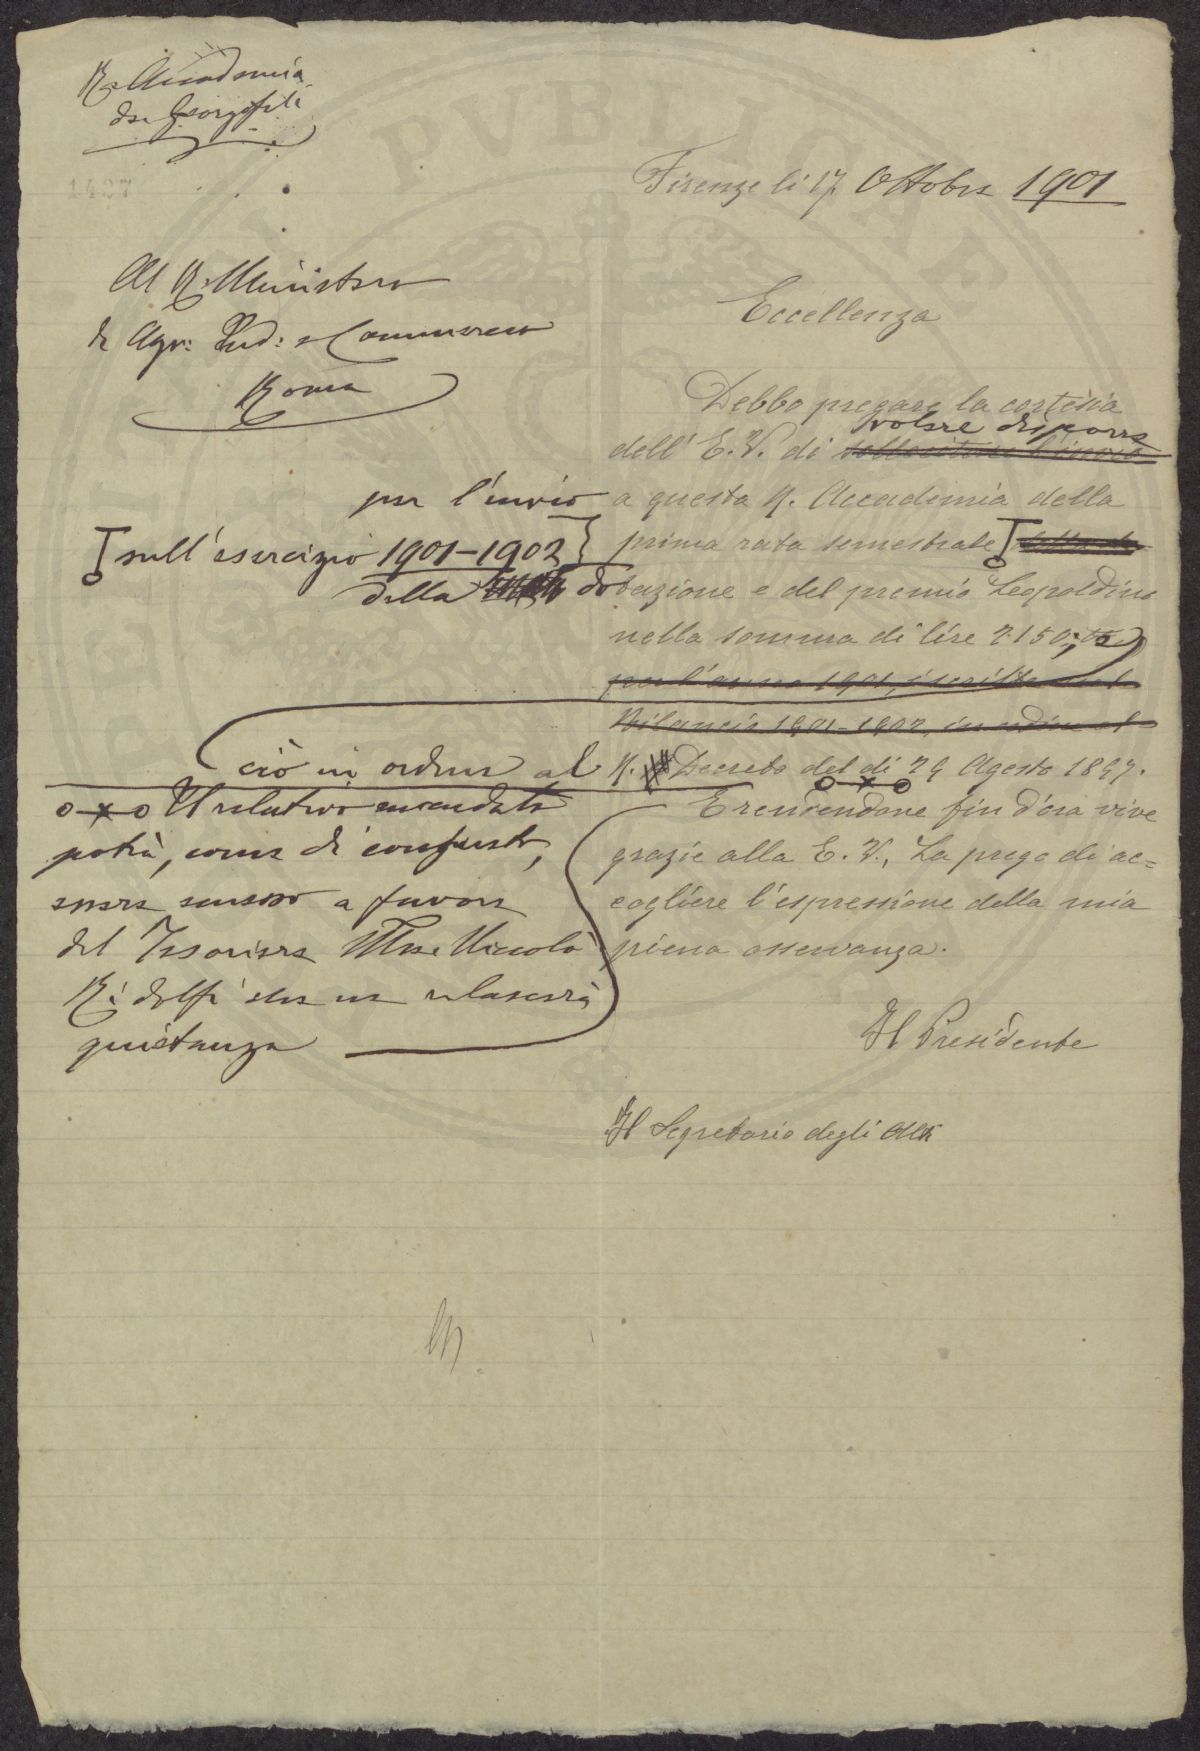 R. Accademia
dei Georgofili
1427
Firenze li 17 Ottobre 1901
Al R. Ministero
di Agr: Ind: e Commercio
Roma
Eccellenza
Debbo pregare la cortesia
volere disporre
dell' E. V. di sollecitare l'invio
per l'invio a questa R. Accademia della
sull'esercizio 1901-1902 prima rata semestrale
della dotazione e del premio Leopoldino
nella somma di lire 2150,
per l'anno 1901, iscritta nel
Bilancio 1901-1902, in ordine al
ciò in ordine al R. Decreto del dì 24 Agosto 1897.
o-x-o
o-x-o Il relativo mandato
potrà, come di consueto,
essere emesso a favore
del Tesoriere Mse. Niccolò
Ridolfi che ne rilascerà
quietanza
E rendendone fin d'ora vive
grazie alla E. V., La prego di ac=
cogliere l'espressione della mia
piena osservanza.
Il Presidente
Il Segretario degli Atti